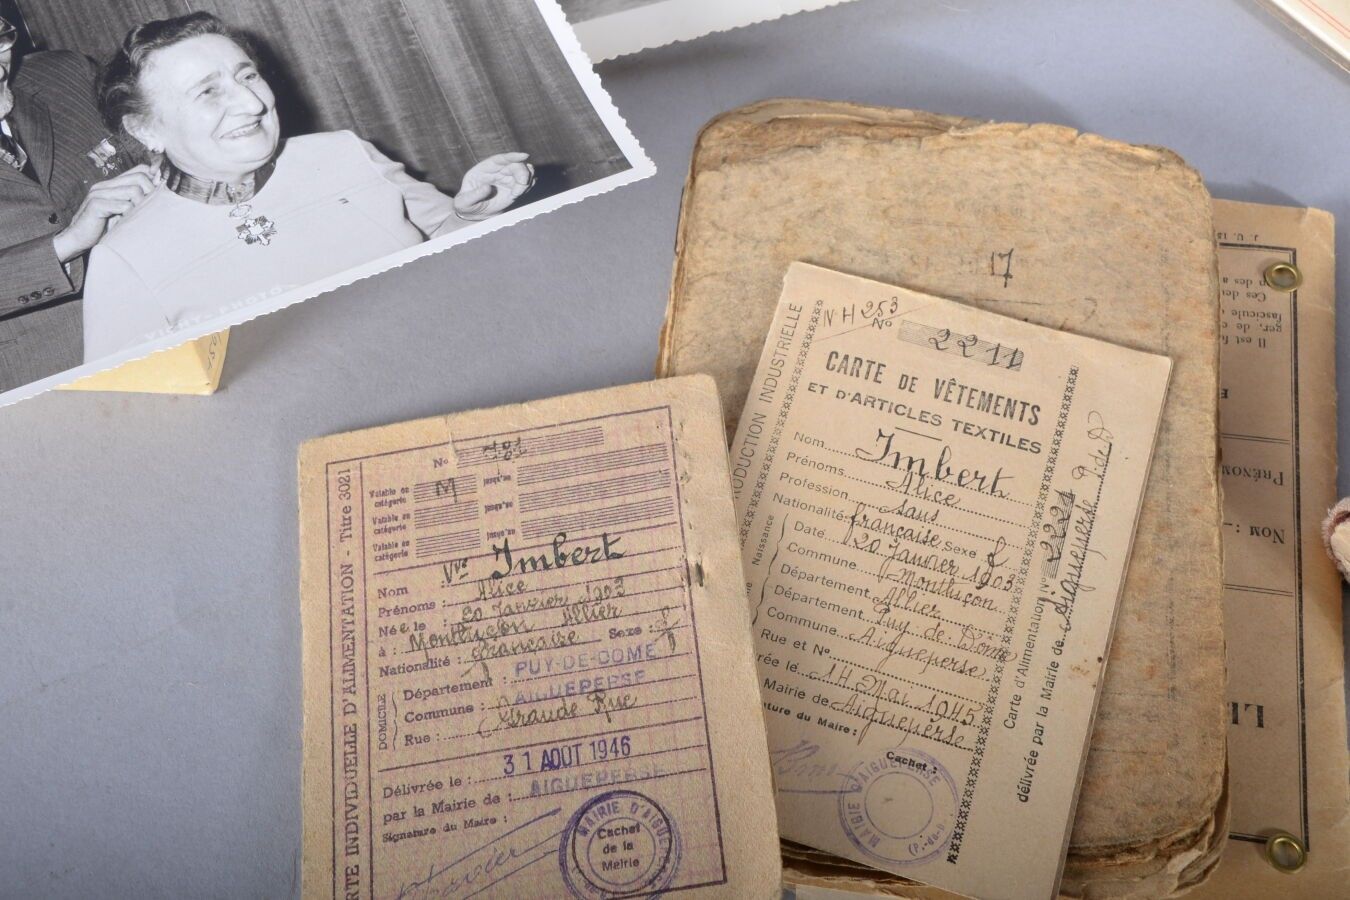 VICHY - PHOTO
17
J. U. 15
Ces deu
fascicule
ger, de c
Il est fa
PRÉNOM
NOM :
LE
PRODUCTION INDUSTRIELLE
N H 253
Nº 2211
CARTE DE VÊTEMENTS
ET D'ARTICLES TEXTILES
Nom Imbert
Prénoms Alice
Profession sans
Nationalité française Sexe f
Naissance
Date 20 Janvier 1903
Commune Montluçon
Département Allier
Département Puy de Dôme
Commune Aigueperse
Rue et Nº
rée le 14 Mai 1945
Mairie de Aigueperse
ature du Maire :
Cachet :
MAIRIE D'AIGUEPERSE
(P.-de-D
Carte d'Alimentation Nº 2221
délivrée par la Mairie de Aigueperse P de D
RTE INDIVIDUELLE D'ALIMENTATION - Titre 3021
Nº 781
Valable en catégorie M jusqu'au
Valable en catégorie jusqu'au
Valable en catégorie jusqu'au
Nom Vve Imbert
Prénoms : Alice
Née le : 20 Janvier 1903
à : Montluçon Allier
Nationalité : française Sexe : f
DOMICILE
Département : PUY-DE-DOME
Commune : AIGUEPERSE
Rue : Grande Rue
Délivrée le : 31 AOUT 1946
par la Mairie de : AIGUEPERSE
Signature du Maire :
MAIRIE D'AIGUEPERSE
Cachet
de la
Mairie